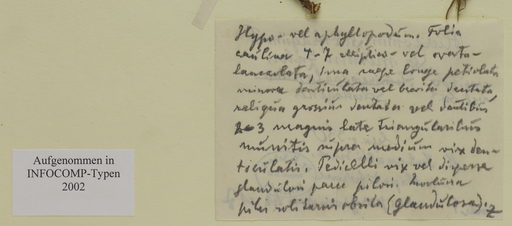 Hypo- vel aphyllopodum. Folia
caulina 4-7 elliptico- vel ovata-
lanceolata, ima saepe longe petiolata
minora denticulata vel breviter dentata
reliqua grossius dentata vel dentibus
2-3 magnis late triangularibus
munitis supra medium vix den-
ticulatis. Pedicelli vix vel disperse
glandulosi parce pilosi. Involucra
pilis solitariis obsita (glandulosa).
Aufgenommen in
INFOCOMP-Typen
2002